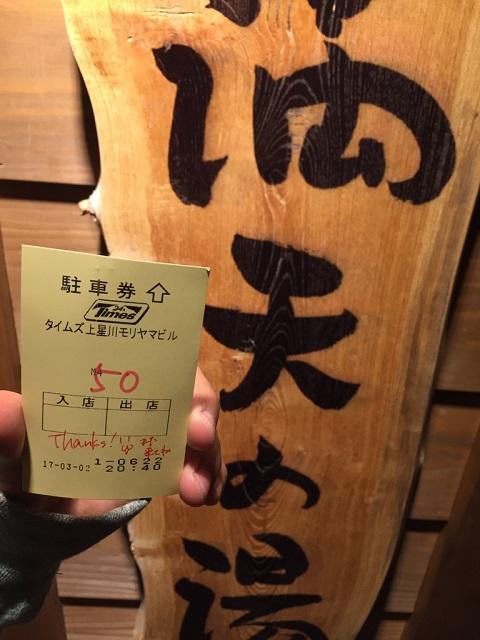 満天の湯
駐車券
24h
Times
タイムズ上星川モリヤマビル
50
入店 出店
Thanks! また来てね
1-0622
17-03-02 20:40